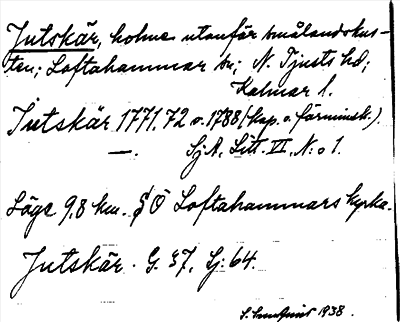 Jutskär, holme utanför smålandskus-
ten; Loftahammar sn; N. Tjusts hd;
Kalmar l.
Jutskär 1771.72 o. 1788 (kop. o. förminsk.)
—. SjA, Litt. VI, N:o 1.
Läge 9,8 km. § Ö Loftahammars kyrka.
Jutskär. G. 87, Sj: 64.
1938.